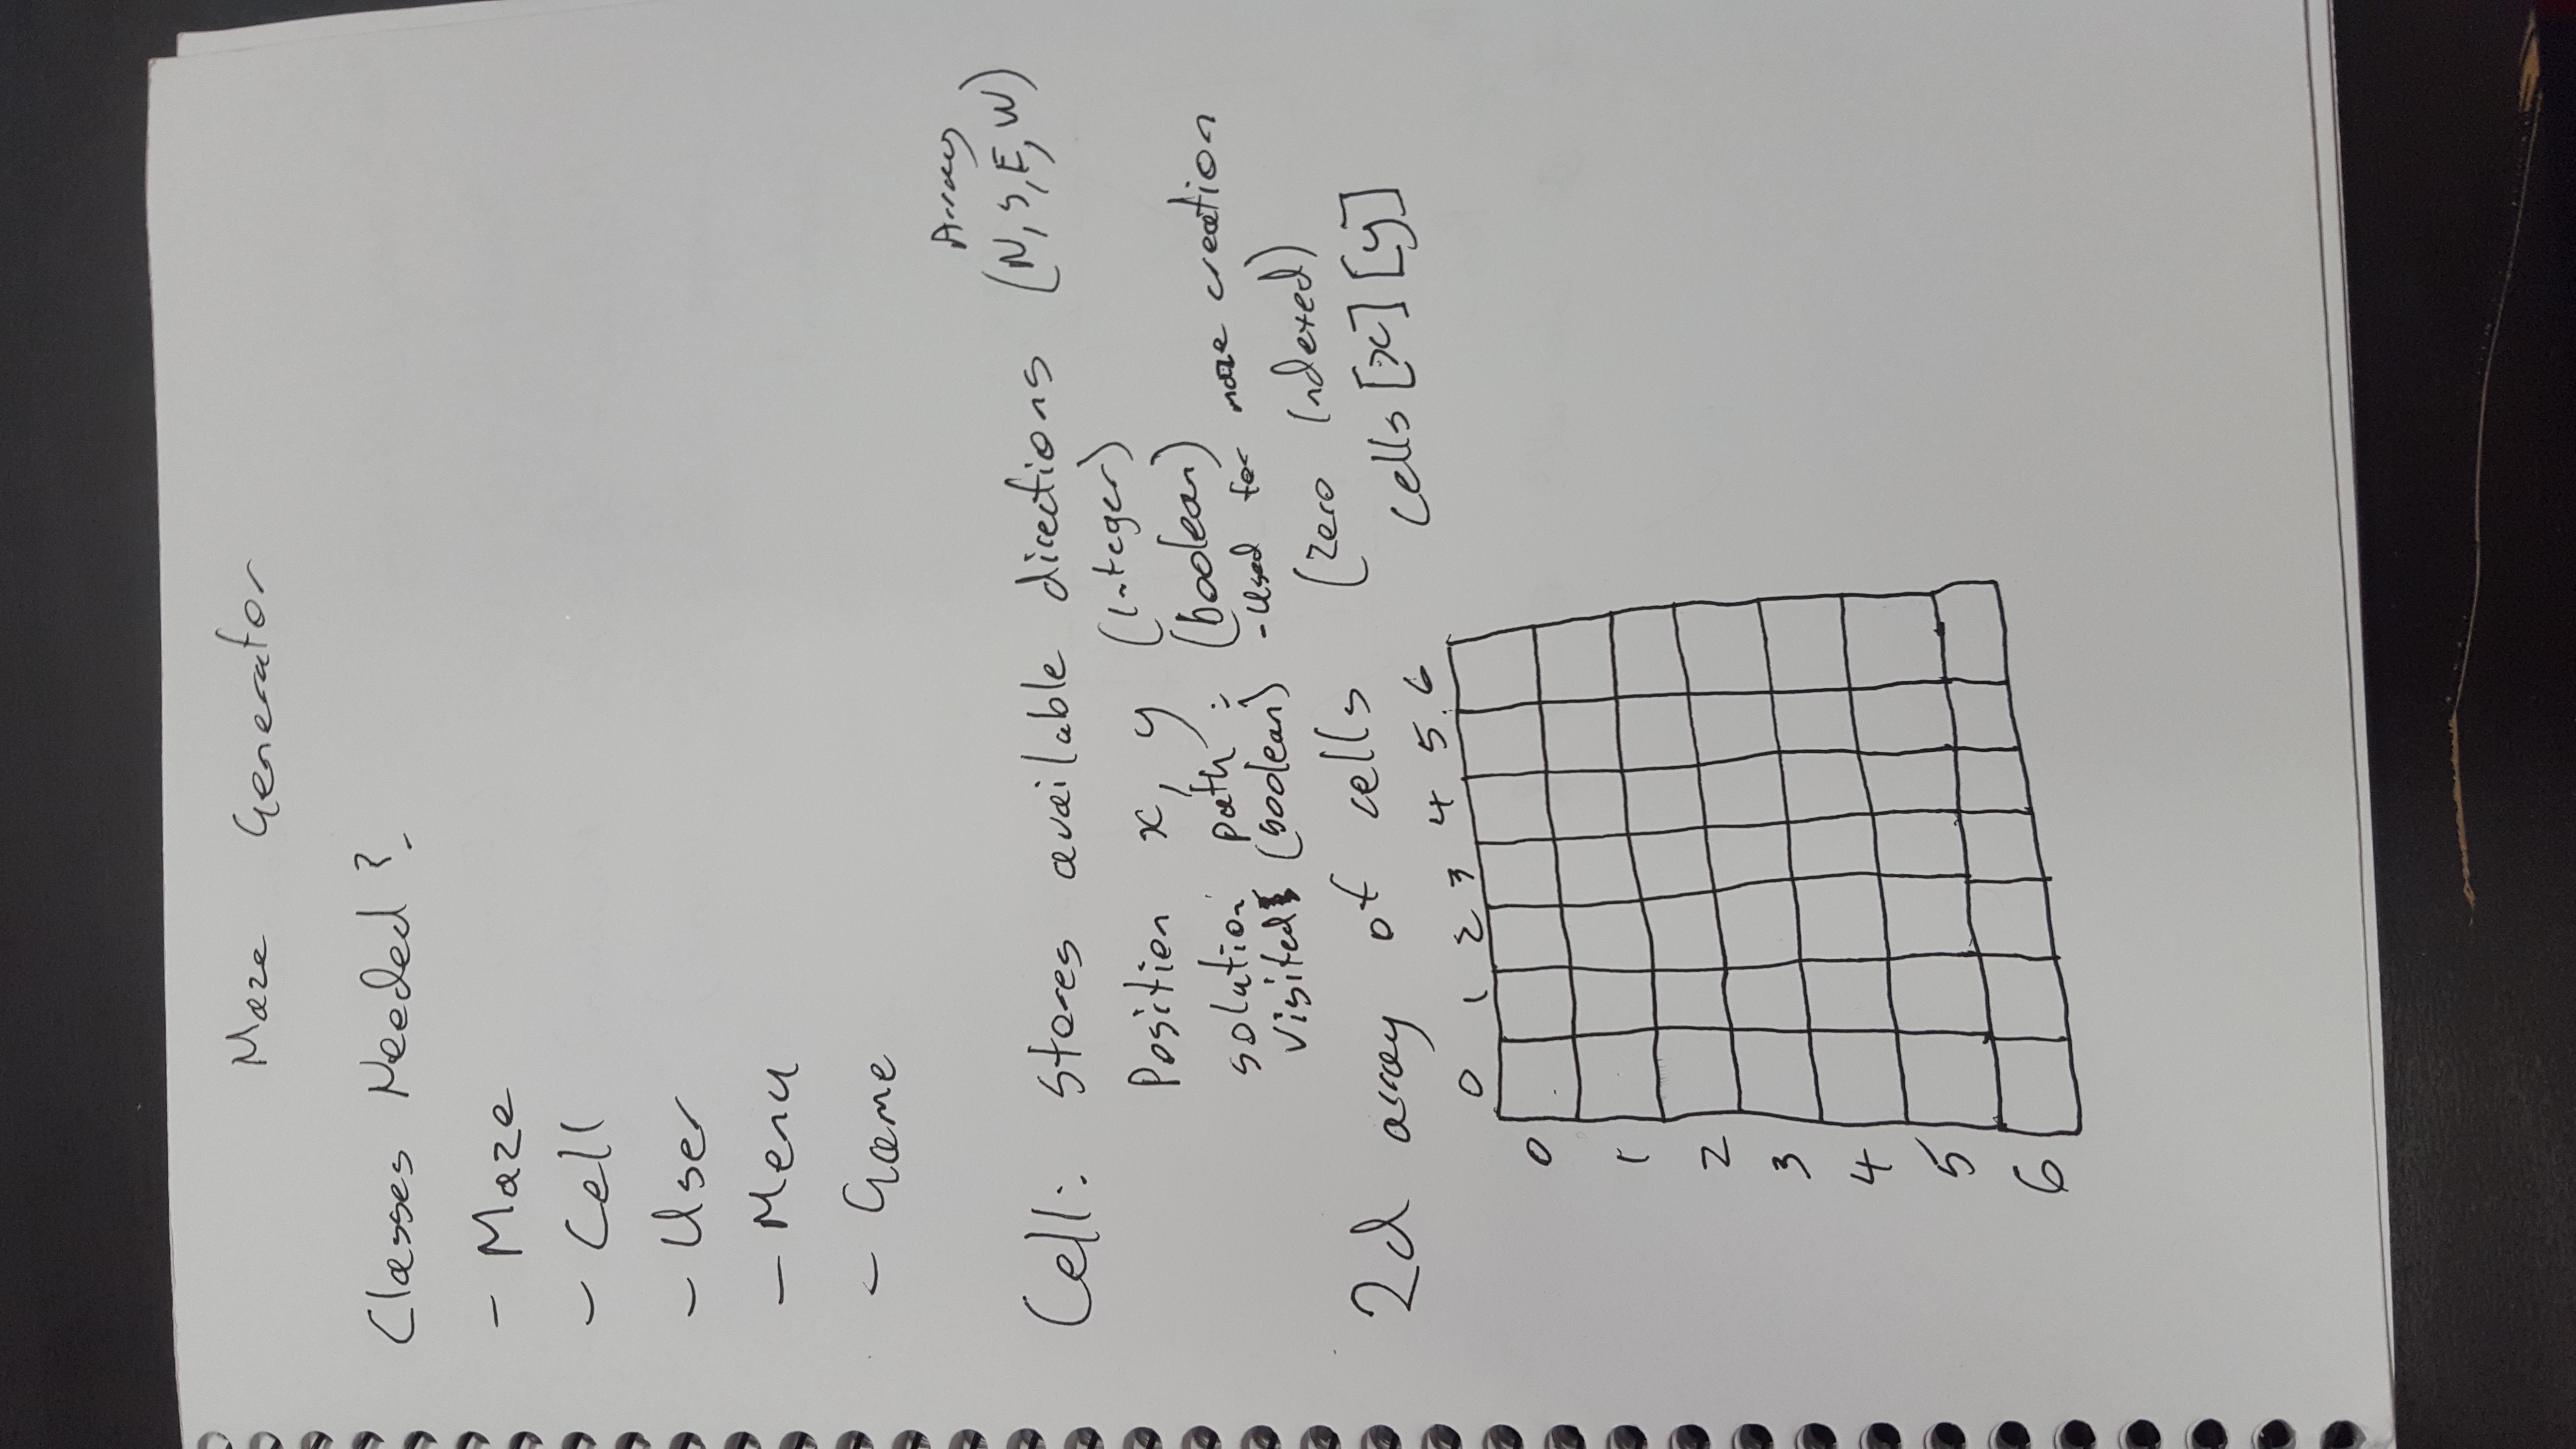 Maze Generator
Classes Needed?
- Maze
- Cell
- User
- Menu
- Game
Array
Cell: Stores available directions (N, S, E, W)
Position x, y (Integer)
solution path: (boolean)
visited (boolean) - used for maze creation
2d array of cells (zero Indexed)
cells [x] [y]
0 1 2 3 4 5 6
0
1
2
3
4
5
6